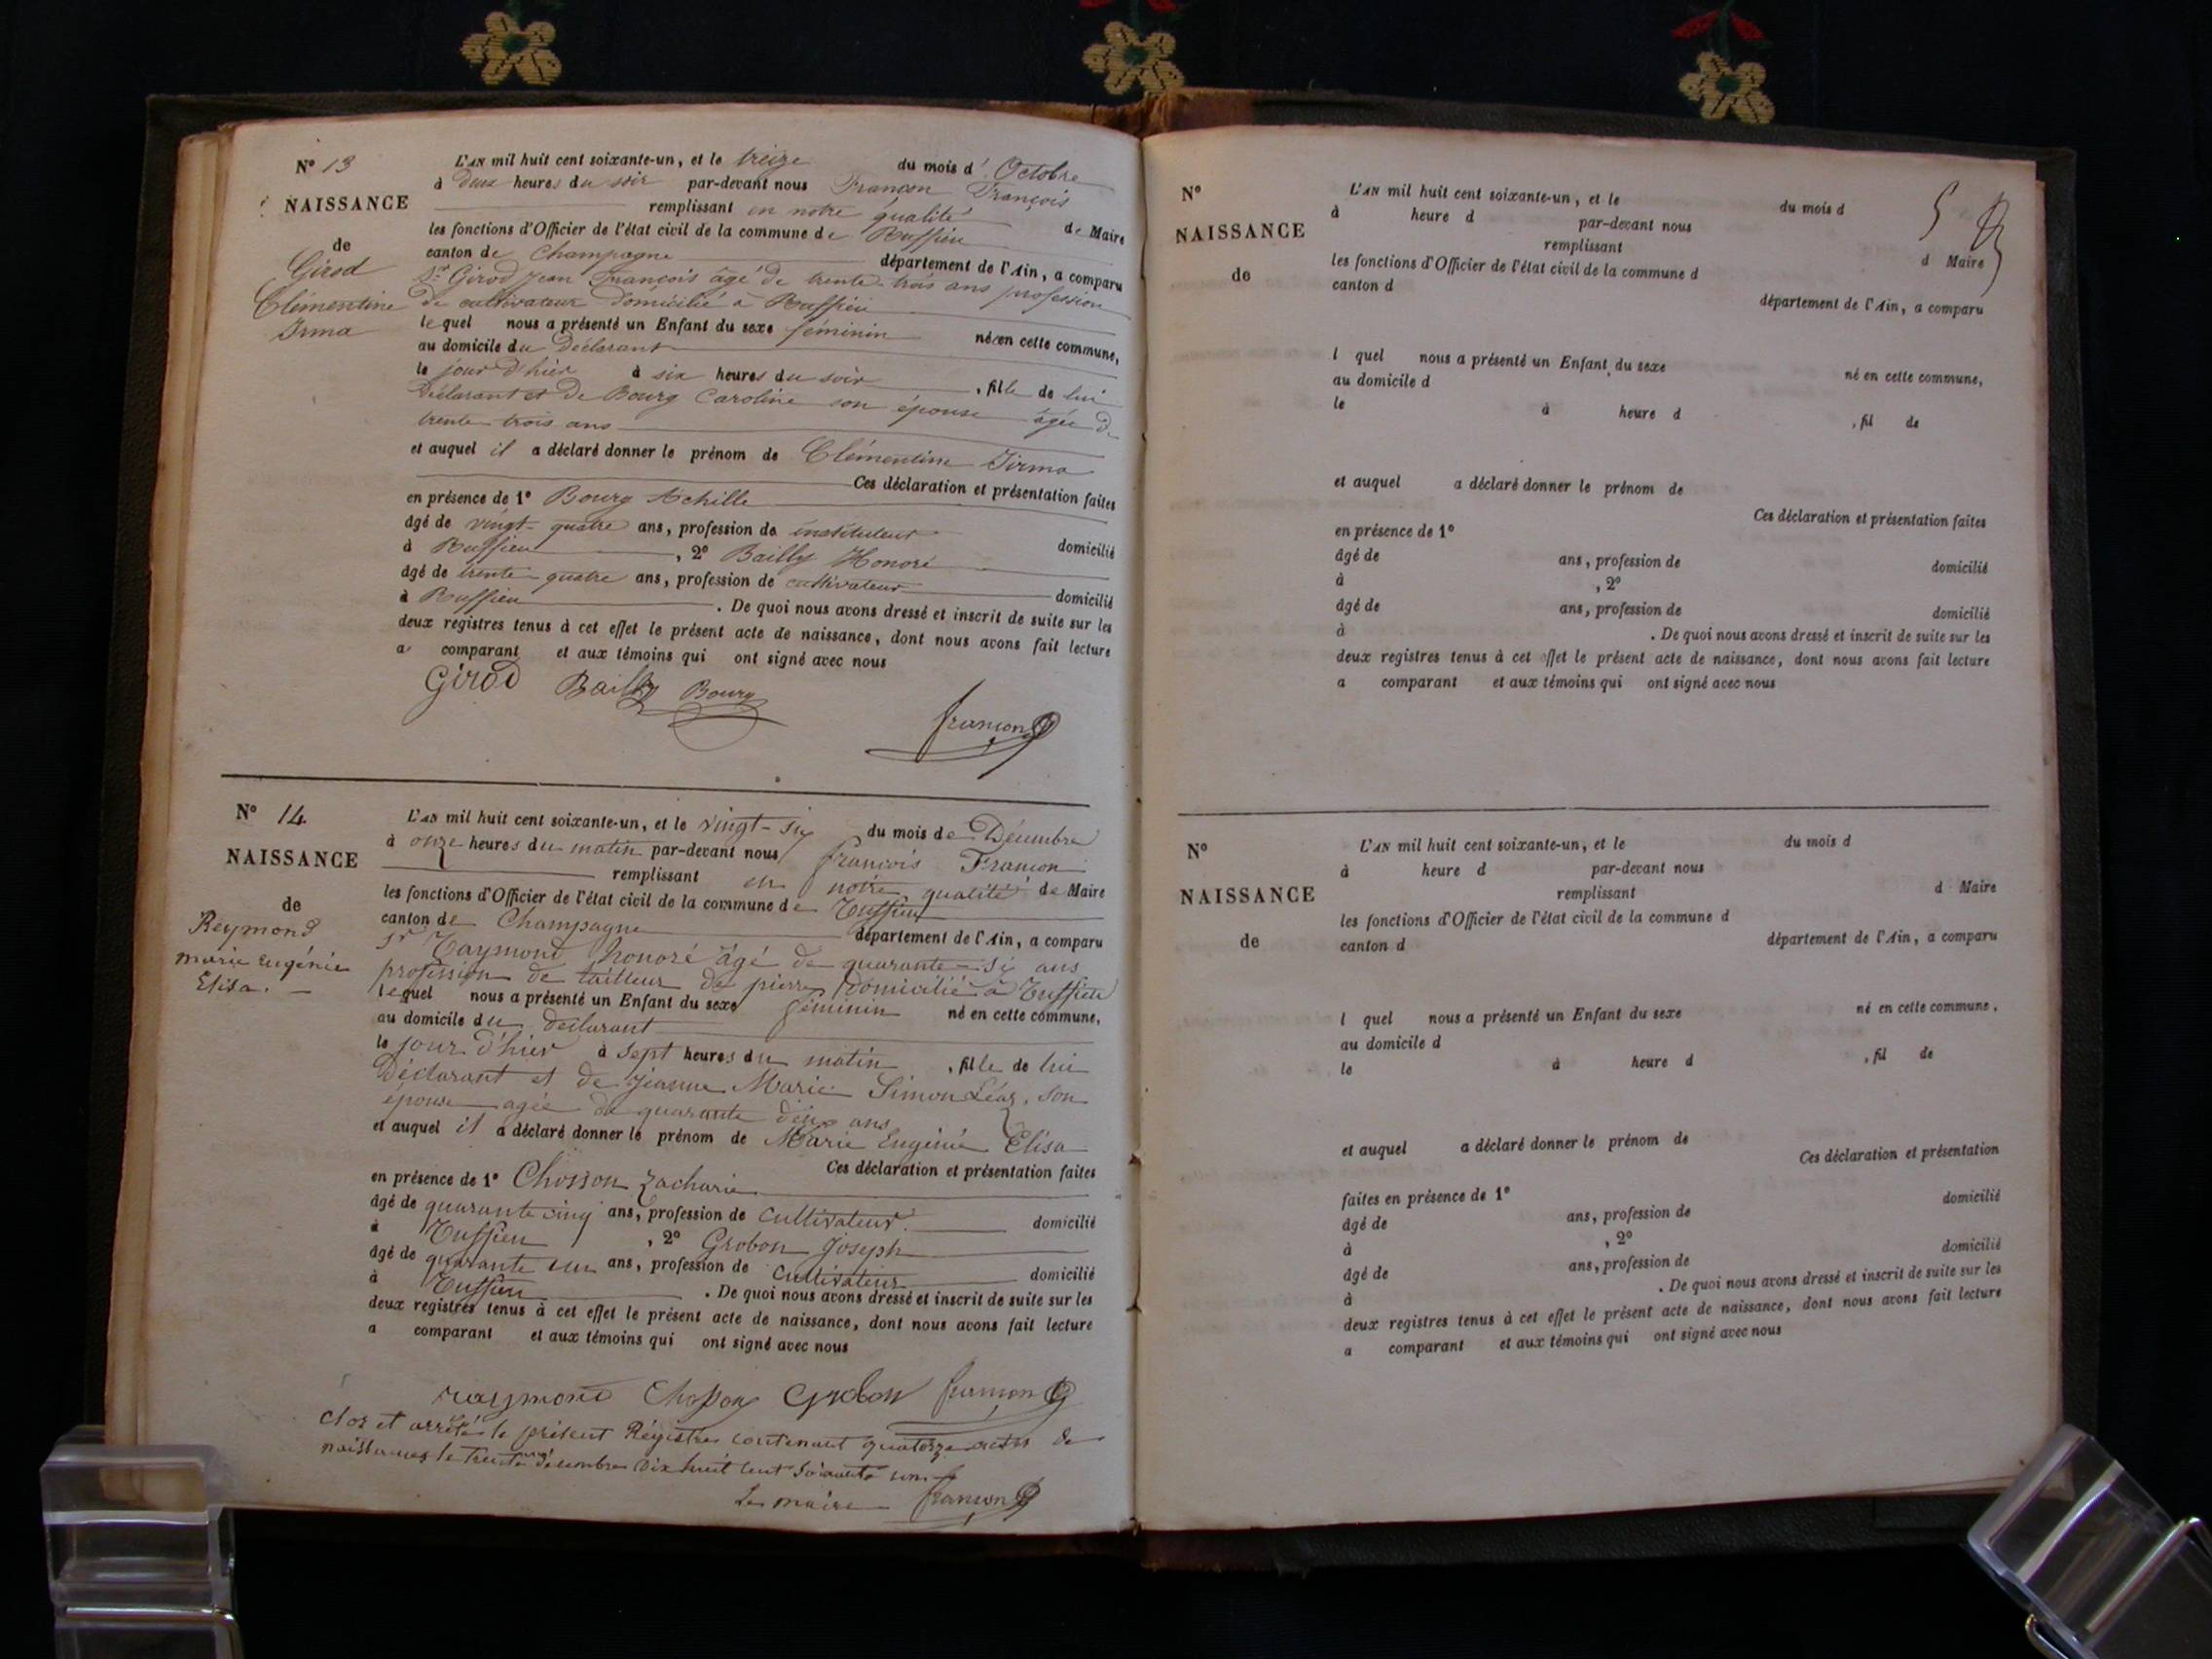 N° 13
NAISSANCE
de
Girod
Clémentine
Irma
L'AN mil huit cent soixante-un, et le treize du mois d'Octobre
à deux heures du soir par-devant nous Françon François
remplissant en notre qualité de Maire
les fonctions d'Officier de l'état civil de la commune de Ruffieu
canton de Champagne département de l'Ain, a comparu
Sr Girod Jean François âgé de trente-trois ans profession
de cultivateur domicilié à Ruffieu
lequel nous a présenté un Enfant du sexe féminin né en cette commune,
au domicile du Déclarant
le jour d'hier à six heures du soir, fille de lui
Déclarant et de Bourg Caroline son épouse âgée de
trente trois ans
et auquel il a déclaré donner le prénom de Clémentine Irma
Ces déclaration et présentation faites
en présence de 1° Bourg Achille
âgé de vingt-quatre ans, profession de instituteur domicilié
à Ruffieu, 2° Bailly Honoré
âgé de trente-quatre ans, profession de cultivateur domicilié
à Ruffieu. De quoi nous avons dressé et inscrit de suite sur les
deux registres tenus à cet effet le présent acte de naissance, dont nous avons fait lecture
a comparant et aux témoins qui ont signé avec nous
Girod Bailly Bourg
françon
N° 14
NAISSANCE
de
Reymond
marie Eugénie
Elisa.
L'AN mil huit cent soixante-un, et le vingt-six du mois de Décembre
à onze heures du matin par-devant nous françois Françon
remplissant en notre qualité de Maire
les fonctions d'Officier de l'état civil de la commune de Ruffieu
canton de Champagne département de l'Ain, a comparu
Sr Raymond honoré âgé de quarante-si ans
profession de tailleur de pierres domicilié à Ruffieu
lequel nous a présenté un Enfant du sexe féminin né en cette commune,
au domicile du déclarant
le jour d'hier à sept heures du matin, fille de lui
Déclarant et de Jeanne Marie Simon Léaz, son
épouse agée de quarante deux ans
et auquel il a déclaré donner le prénom de Marie Eugénie Elisa
Ces déclaration et présentation faites
en présence de 1° Chosson Zacharie
âgé de quarante cinq ans, profession de cultivateur domicilié
à Ruffieu, 2° Grobon Joseph
âgé de quarante un ans, profession de cultivateur domicilié
à Ruffieu. De quoi nous avons dressé et inscrit de suite sur les
deux registres tenus à cet effet le présent acte de naissance, dont nous avons fait lecture
a comparant et aux témoins qui ont signé avec nous
raymond Chosson Grobon françon
Clos et arrêté le présent Régistre contenant quatorze actes de
naissances le Trente Décembre Dix huit cent soixante un.
Le maire françon
N°
NAISSANCE
de
5
L'AN mil huit cent soixante-un, et le du mois d
à heure d par-devant nous
remplissant d Maire
les fonctions d'Officier de l'état civil de la commune d
canton d département de l'Ain, a comparu
l quel nous a présenté un Enfant du sexe né en cette commune,
au domicile d
le à heure d , fil de
et auquel a déclaré donner le prénom de
Ces déclaration et présentation faites
en présence de 1°
âgé de ans, profession de domicilié
à , 2°
âgé de ans, profession de domicilié
à . De quoi nous avons dressé et inscrit de suite sur les
deux registres tenus à cet effet le présent acte de naissance, dont nous avons fait lecture
a comparant et aux témoins qui ont signé avec nous
N°
NAISSANCE
de
L'AN mil huit cent soixante-un, et le du mois d
à heure d par-devant nous
remplissant d Maire
les fonctions d'Officier de l'état civil de la commune d
canton d département de l'Ain, a comparu
l quel nous a présenté un Enfant du sexe né en cette commune,
au domicile d
le à heure d , fil de
et auquel a déclaré donner le prénom de
Ces déclaration et présentation
faites en présence de 1° domicilié
âgé de ans, profession de
à , 2°
âgé de ans, profession de domicilié
à . De quoi nous avons dressé et inscrit de suite sur les
deux registres tenus à cet effet le présent acte de naissance, dont nous avons fait lecture
a comparant et aux témoins qui ont signé avec nous